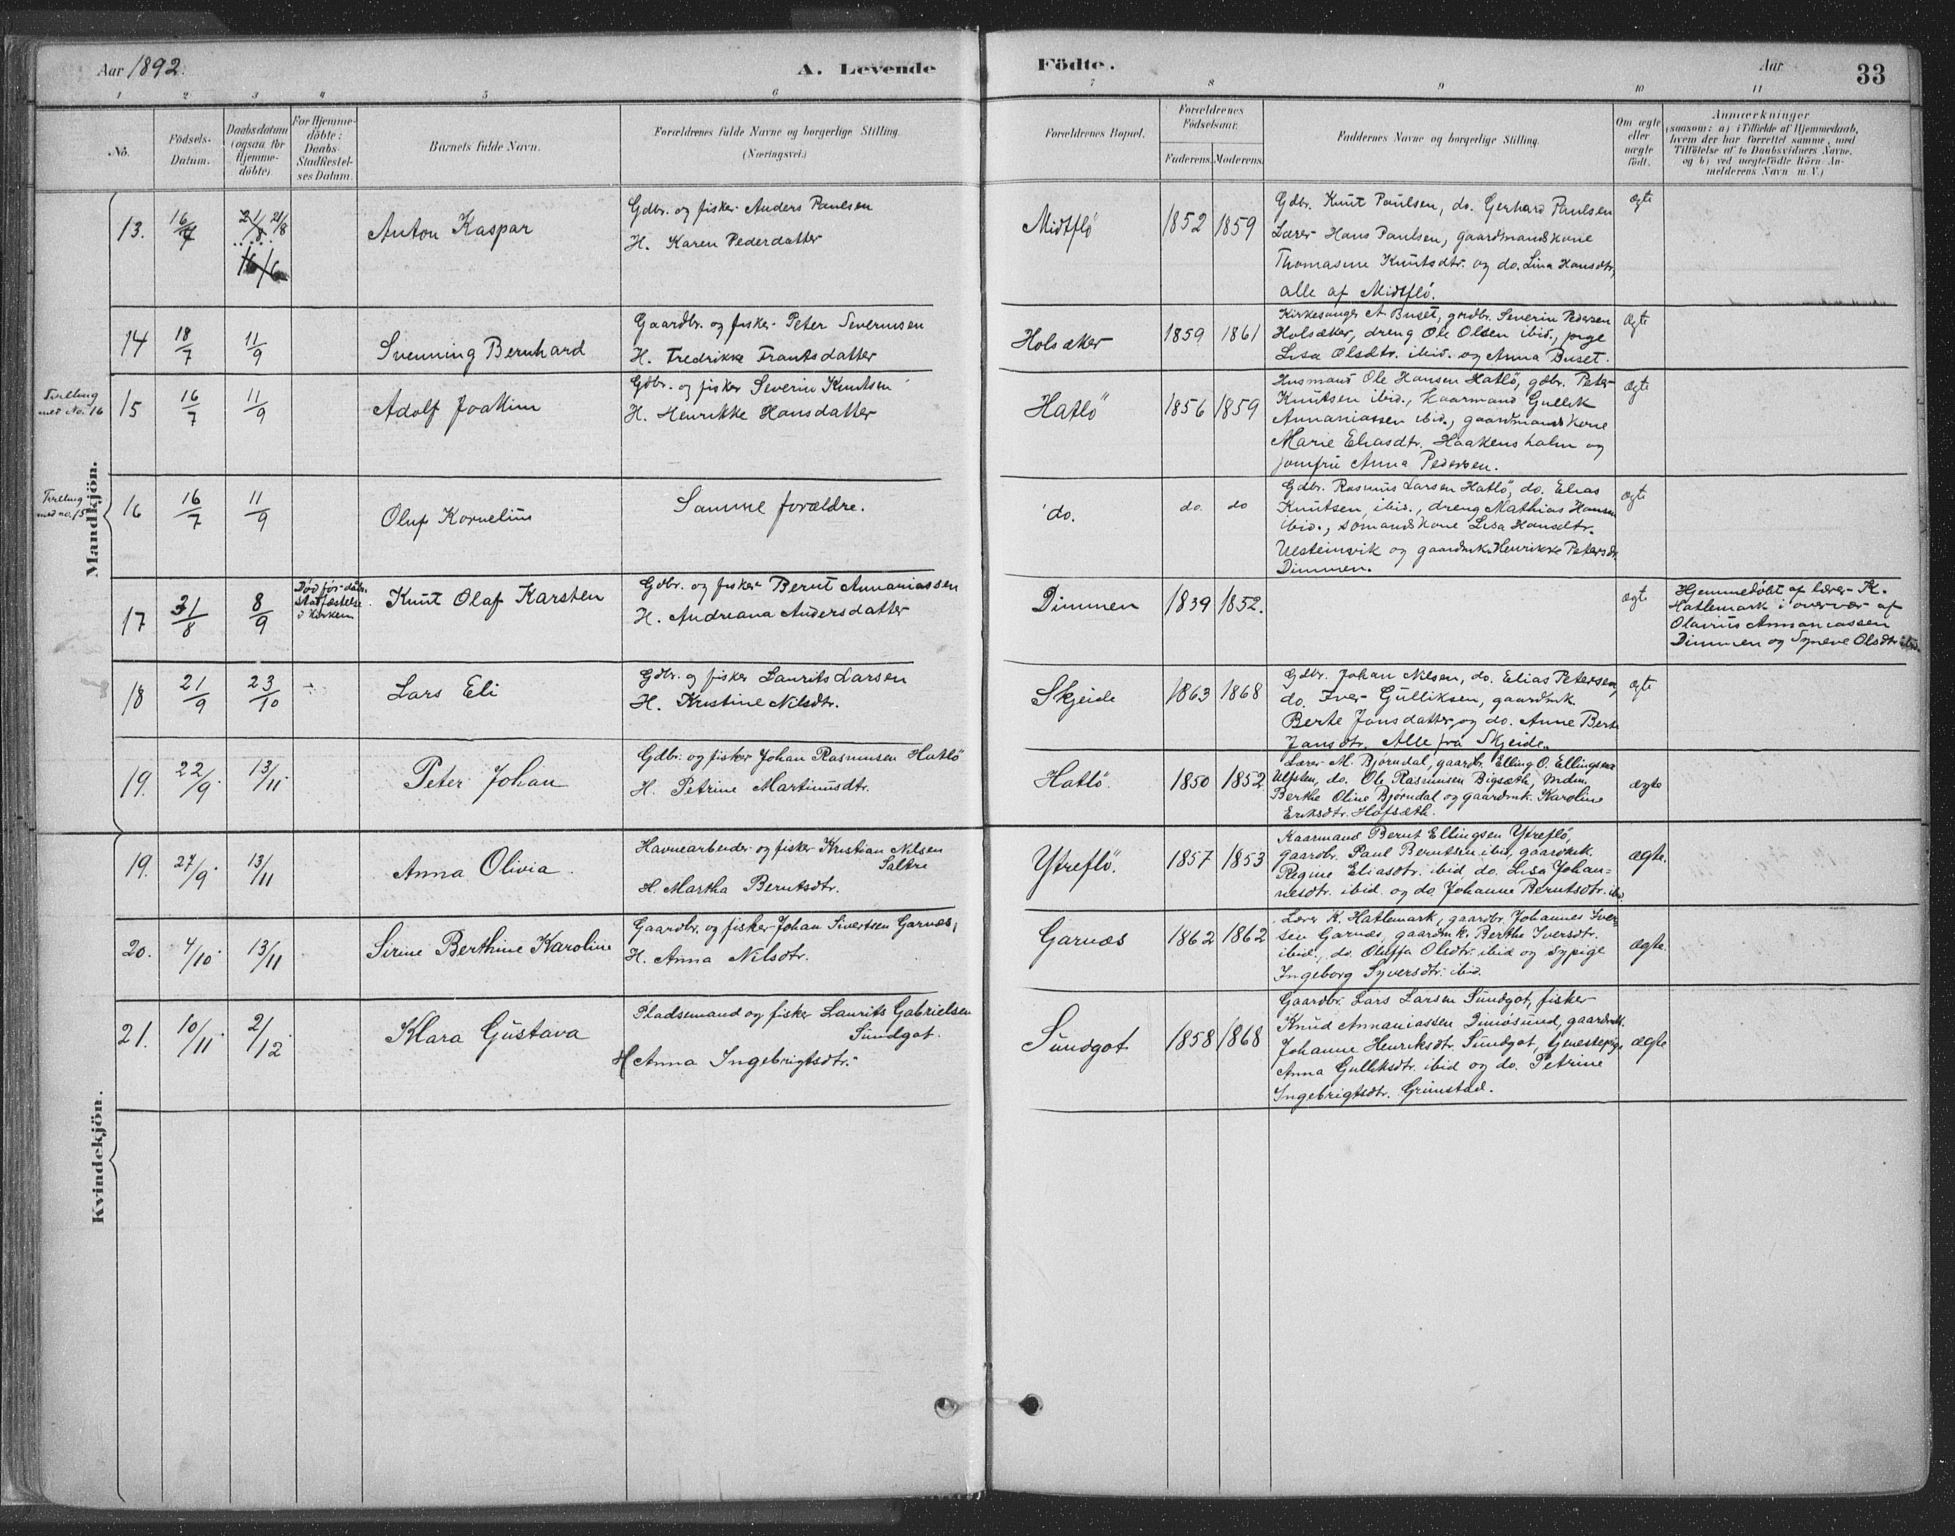 Aar 1892.
A. Levende
Födte.
Aar
33
1 2 3 4 5 6 7 8 9 10 11
No.
Födsels-
Datum.
Daabsdatum
(ogsaa for
Hjemme-
döbte).
For Hjemme-
döbte:
Daabs-
Stadfæstel-
ses Datum.
Barnets fulde Navn.
Forældrenes fulde Navne og borgerlige Stilling.
(Næringsvei.)
Forældrenes Bopæl.
Forældrenes
Födselsaar.
Faderens. Moderens.
Faddernes Navne og borgerlige Stilling.
Om ægte
eller
uægte
födt.
Anmærkninger
(saasom: a) i Tilfælde af Hjemmedaab,
hvem der har forrettet samme, med
Tilföielse af to Daabsvidners Navne,
og b) ved uægtefödte Börn An-
melderens Navn m. V.)
Mandkjön.
13.
16/7
21/8 21/8
16/6
Anton Kaspar
Gdbr. og fisker Anders Paulsen
H. Karen Pedersdatter
Midtflö
1852 1859
Gdbr. Knut Paulsen, do. Gerhard Paulsen
Lærer Hans Paulsen, gaardmandskone
Thomasine Knutsdtr. og do. Lina Hansdtr,
alle af Midtflö.
ægte
14
18/7
11/9
Svenning Bernhard
Gaardbr. og fisker Peter Severinsen
H. Fredrikke Frantsdatter
Holsæker
1859 1861
Kirkesanger A. Buset, grdbr. Severin Pedersen
Holsæker, dreng Ole Olsen ibid., pige
Lisa Olsdtr. ibid. og Anna Buset.
Ægte
Tvilling
med No. 16
15
16/7
11/9
Adolf Joakim
Gdbr. og fisker Severin Knutsen
H. Henrikke Hansdatter
Hatlö
1856 1859
Husmand Ole Hansen Hatlö, gdbr. Peter
Knutsen ibid., Kaarmand Gullik
Annaniassen ibid., gaardmandskone
Marie Eliasdtr. Haakensholm og
jomfru Anna Pedersen.
Ægte
Tvilling
med no. 15
16
16/7
11/9
Oluf Kornelius
Samme forældre.
do.
do. do
Gdbr. Rasmus Larsen Hatlö, do. Elias
Knutsen, ibid., dreng Mathias Hansen
ibid., sömandskone Lisa Hansdtr.
Ulsteinvik og gaardmk. Henrikke Petersdr.
Dimmen.
ægte
17
31/8
8/9
Död för daabs
stadfæstelse
i kirken
Knut Olaf Karsten
Gdbr. og fisker Bernt Annaniassen
H. Andreana Andersdatter
Dimmen
1839 1852.
ægte
Hjemmedöbt af lærer K.
Hatlemark i overvær af
Olavius Annaniassen
Dimmen og Syneve Olsdtr ibid.
18
21/9
23/10
Lars Eli
Gdbr. og fisker Laurits Larsen
H. Kristine Nilsdtr.
Skjeide
1863 1868
Gdbr. Johan Nilsen, do. Elias Petersen,
do. Iver Gulliksen, gaardmk.
Berte Jansdatter, og do. Anne Berte
Jansdtr. Alle fra Skjeide.
ægte
19.
22/9
13/11
Peter Johan
Gdbr. og fisker Johan Rasmusen Hatlö
H. Petrine Martinusdtr.
Hatlö.
1850 1852
Lærer M. Bjørndal, gaardbr. Elling O. Ellingsen
Ulsten, do. Ole Rasmusen Bigsæth, Mdm.
Berthe Oline Bjørndal og gaardmk. Karoline
Eriksdtr. Hofsæth.
ægte
Kvindekjön.
19.
27/9
13/11
Anna Olivia.
Havnearbeider og fisker Kristian Nilsen
H. Martha Berntsdtr.
Ytreflö.
1857 1853
Kaarmand Bernt Ellingsen Ytreflö,
gaardbr. Paul Berntsen ibid, gaardmk.
Regine Eliasdtr. ibid do. Lisa Johan-
nesdtr. ibid. og do. Johanne Berntsdtr. ibid
ægte.
20.
4/10
13/11
Sirine Berthine Karoline
Gaardbr. og fisker Johan Sivertsen Garnæs,
H. Anna Nilsdtr.
Garnæs
1862 1862
Lærer K. Hatlemark, gaardbr. Johannes Iver-
sen Garnæs, gaardmk. Berthe Iversdtr.
ibid., do. Oluffa Olsdtr. ibid og sypige
Ingeborg Syversdtr. ibid.
ægte.
21.
10/11
2/12
Klara Gustava
Pladsemand og fisker Laurits Gabrielsen
Sundgot.
H. Anna Ingebrigtsdtr.
Sundgot
1858 1868
Gaardbr. Lars Larsen Sundgot, fisker
Knud Annaniassen Dimösund, gaardmk.
Johanne Henriksdtr. Sundgot, tjenestepige
Anna Gulliksdtr. ibid og do. Petrine
Ingebrigtsdtr. Grimstad.
ægte